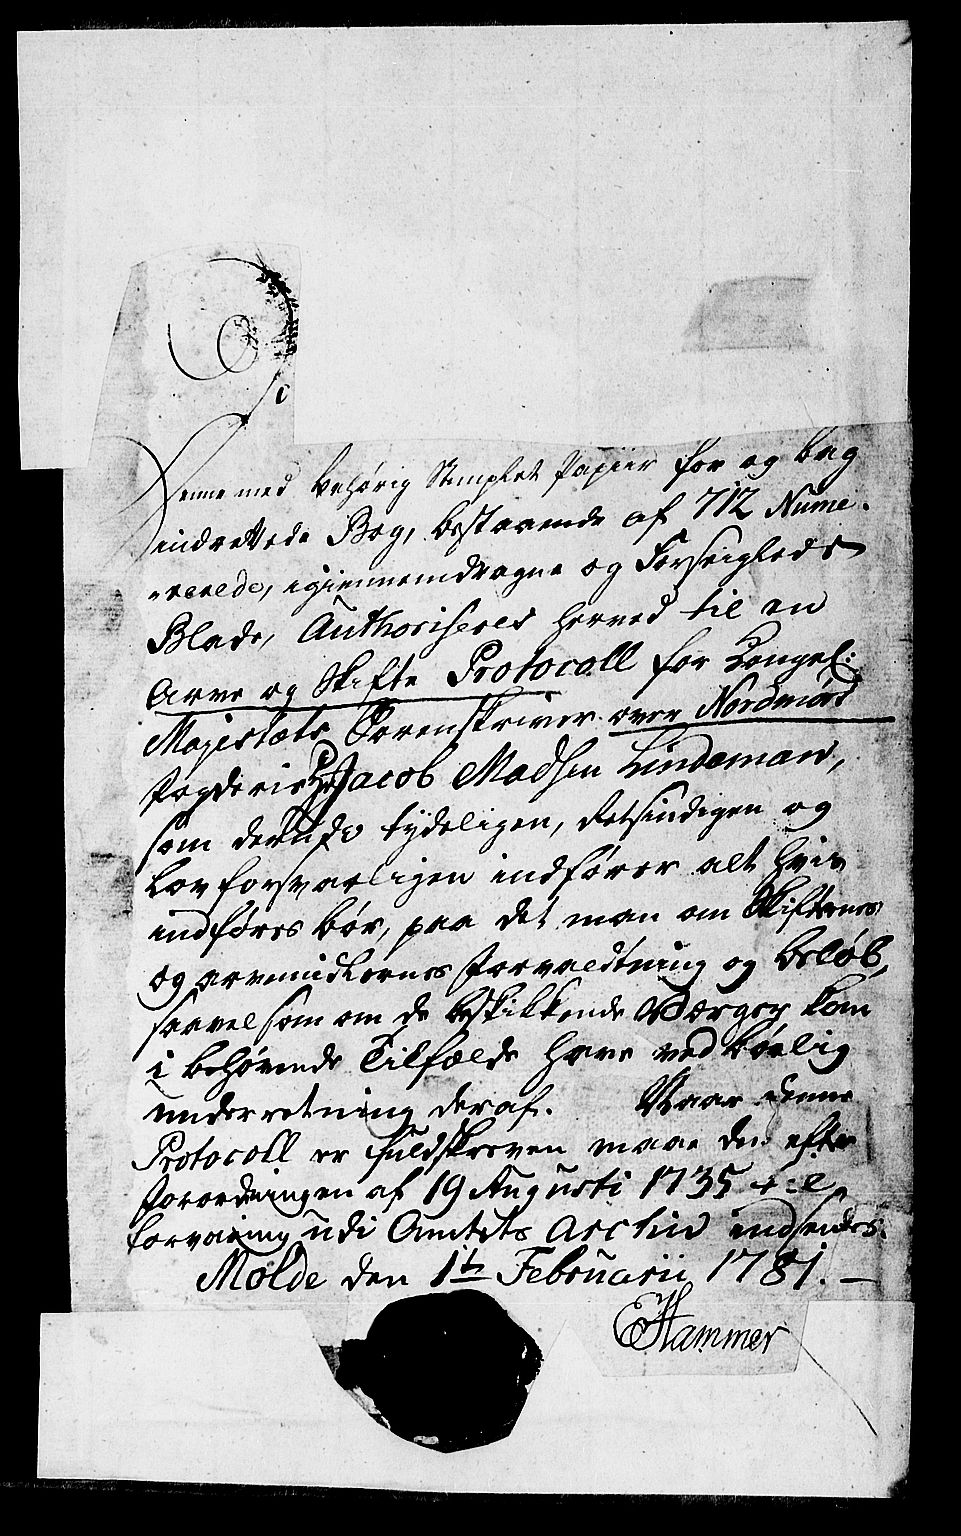 Denne med behørig Stemplet Papiir for og bag
indrettede Bog, bestaaende af 712 Nume-
-rerede, igiennemdragne og Forseiglede
Blade, Authoriseres herved til en
Arve og Skifte Protocoll for Kongel:
Majestæts Sorenskriver over Nordmørs
fogderie Hr Jacob Madsen Lindeman,
som derudj tydeligen, Retsindigen og
Lovforsvarligen indfører alt hvis
indføres bør, paa det man om Skifternes
og arvemidlernes forvaldtning og beløb,
saavelsom om de beskikkende Værger kan
i behøvende Tilfælde have ved børlig
underretning deraf. Naar denne
Protocoll er fuldskreven maae den efter
forordningen af 19 Augusti 1735 til
forvaring udi Amtets Archiv indsendes.
Molde den 1te Februarii 1781. —
Hammer